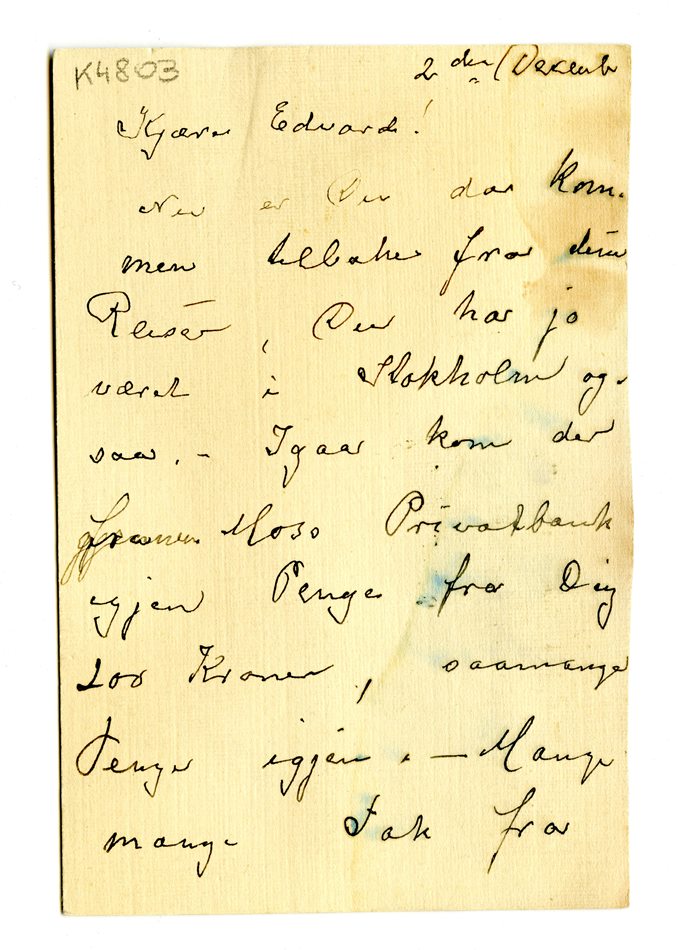 K4803
2 den Decemb
Kjære Edvard!
Nu er Du da kom-
men tilbake fra din
Reise, Du har jo
været i Stokholm og-
saa. – Igaar kom der
Moss Privatbank
igjen Penge fra Dig
200 Kroner, saamange
Penge igjen. – Mange
mange Tak fra